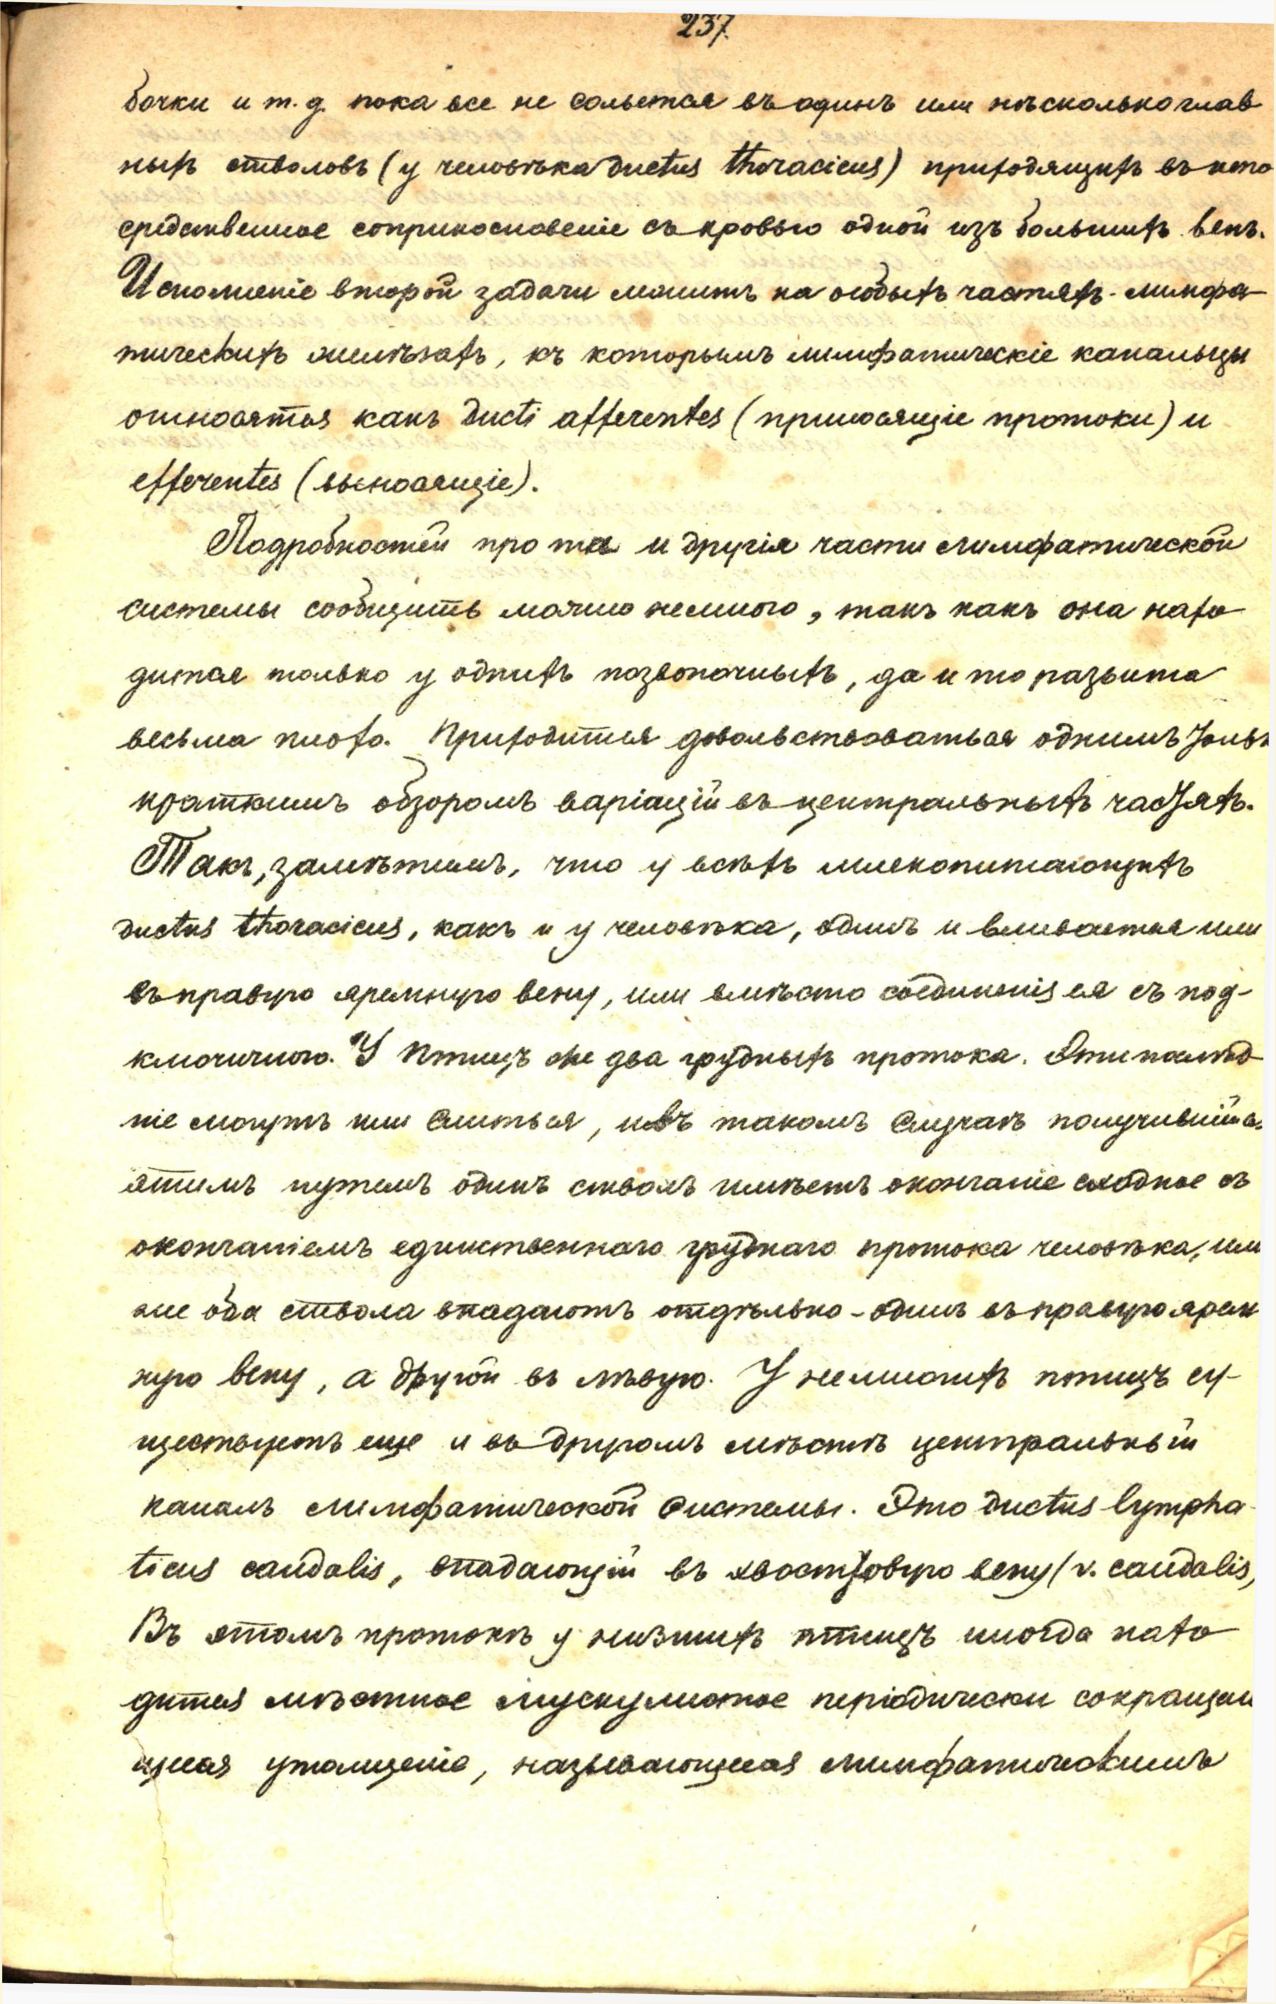 237.
бочки и т. д. пока все не сольется въ одинъ или нѣсколько глав
ныхъ стволовъ (у человѣка ductus thoracicus) приходящихъ въ непо
средственное соприкосновеніе съ кровью одной изъ большихъ венъ.
Исполненіе второй задачи лежитъ на особыхъ частяхъ - лимфа-
тическихъ железахъ, къ которымъ лимфатическіе канальцы
относятся какъ ducti afferentes (приносящіе протоки) и
efferentes (выносящіе).
Подробностей про та и другія части лимфатической
системы сообщить можно немного, такъ какъ она нахо
дится только у однихъ позвоночныхъ, да и то развита
весьма плохо. Приходится довольствоваться однимъ
краткимъ обзоромъ варіацій въ центральныхъ частяхъ.
Такъ, замѣтимъ, что у всѣхъ млекопитающихъ
ductus thoracicus, какъ и у человѣка, одинъ и вливается или
въ правую яремную вену, или вмѣсто соединенія ея съ под-
ключичного. У птицъ же два грудныхъ протока. Эти послѣд
ніе могутъ или слиться, и въ такомъ случаѣ получившійся
этимъ путемъ одинъ стволъ имѣетъ окончаніе сходное съ
окончаніемъ единственнаго грудного протока человѣка, или
же оба ствола впадаютъ отдѣльно - одинъ въ правую ярем
ную вену, а другой въ лѣвую. У немногихъ птицъ су-
ществуетъ еще и въ другомъ мѣстѣ центральный
каналъ лимфатической системы. Это ductus lympha-
ticus caudalis, впадающій въ хвостовую вену (v. caudalis,
Въ этомъ протокѣ у низшихъ птицъ иногда нахо
дится мѣстное мускулистое періодически сокращаю
щееся утолщеніе, называющееся лимфатическимъ